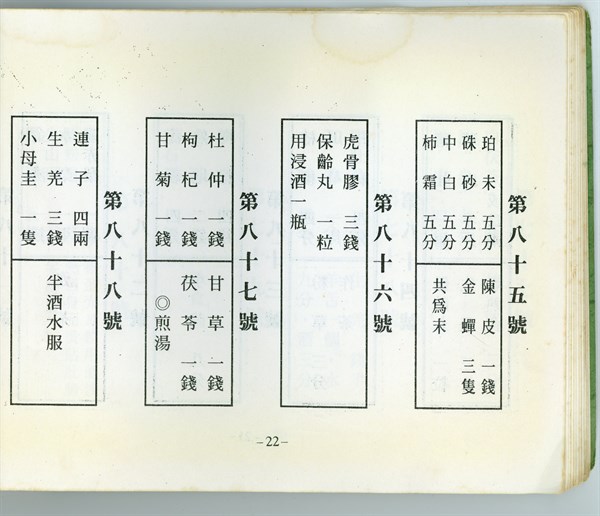 第八十五號
珀末 五分
硃砂 五分
中白 五分
柿霜 五分
陳皮 一錢
金蟬 三隻
共為末
第八十六號
虎骨膠 三錢
保齡丸 一粒
用浸酒一瓶
第八十七號
杜仲 一錢
枸杞 一錢
甘菊 一錢
甘草 一錢
茯苓 一錢
◎煎湯
第八十八號
連子 四兩
生羌 三錢
小母圭 一隻
半酒水服
-22-